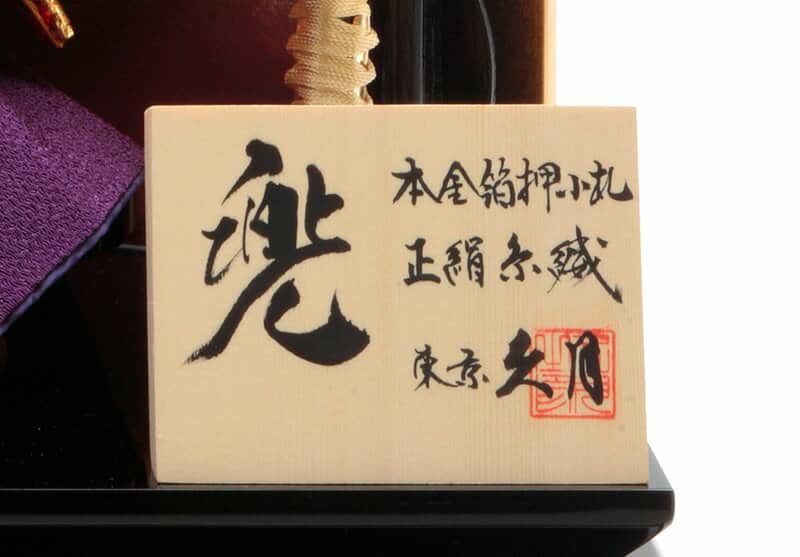 兜
本金箔押小札
正絹糸縅
東京久月